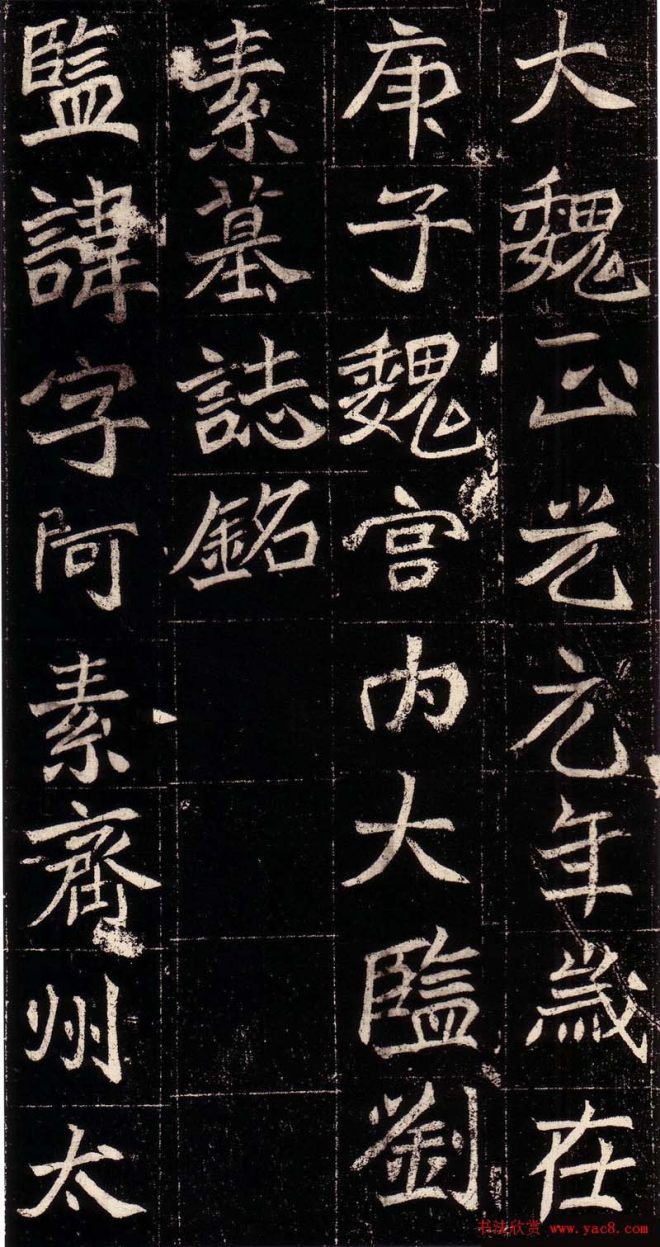 大魏正光元年歲在
庚子魏宫内大監劉
素墓誌銘
監諱字阿素齊州太
书法欣赏 www.yac8.com